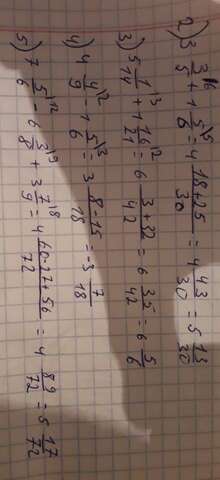 2) 3 3/5\6 + 1 5/6\5 = 4 18+25/30 = 4 43/30 = 5 13/30
3) 5 1/14\3 + 1 16/21\2 = 6 3+32/42 = 6 35/42 = 6 5/6
4) 4 4/9\2 - 1 5/6\3 = 3 8-15/18 = -3 7/18
5) 7 5/6\12 - 6 3/8\9 + 3 7/9\8 = 4 60-27+56/72 = 4 89/72 = 5 17/72